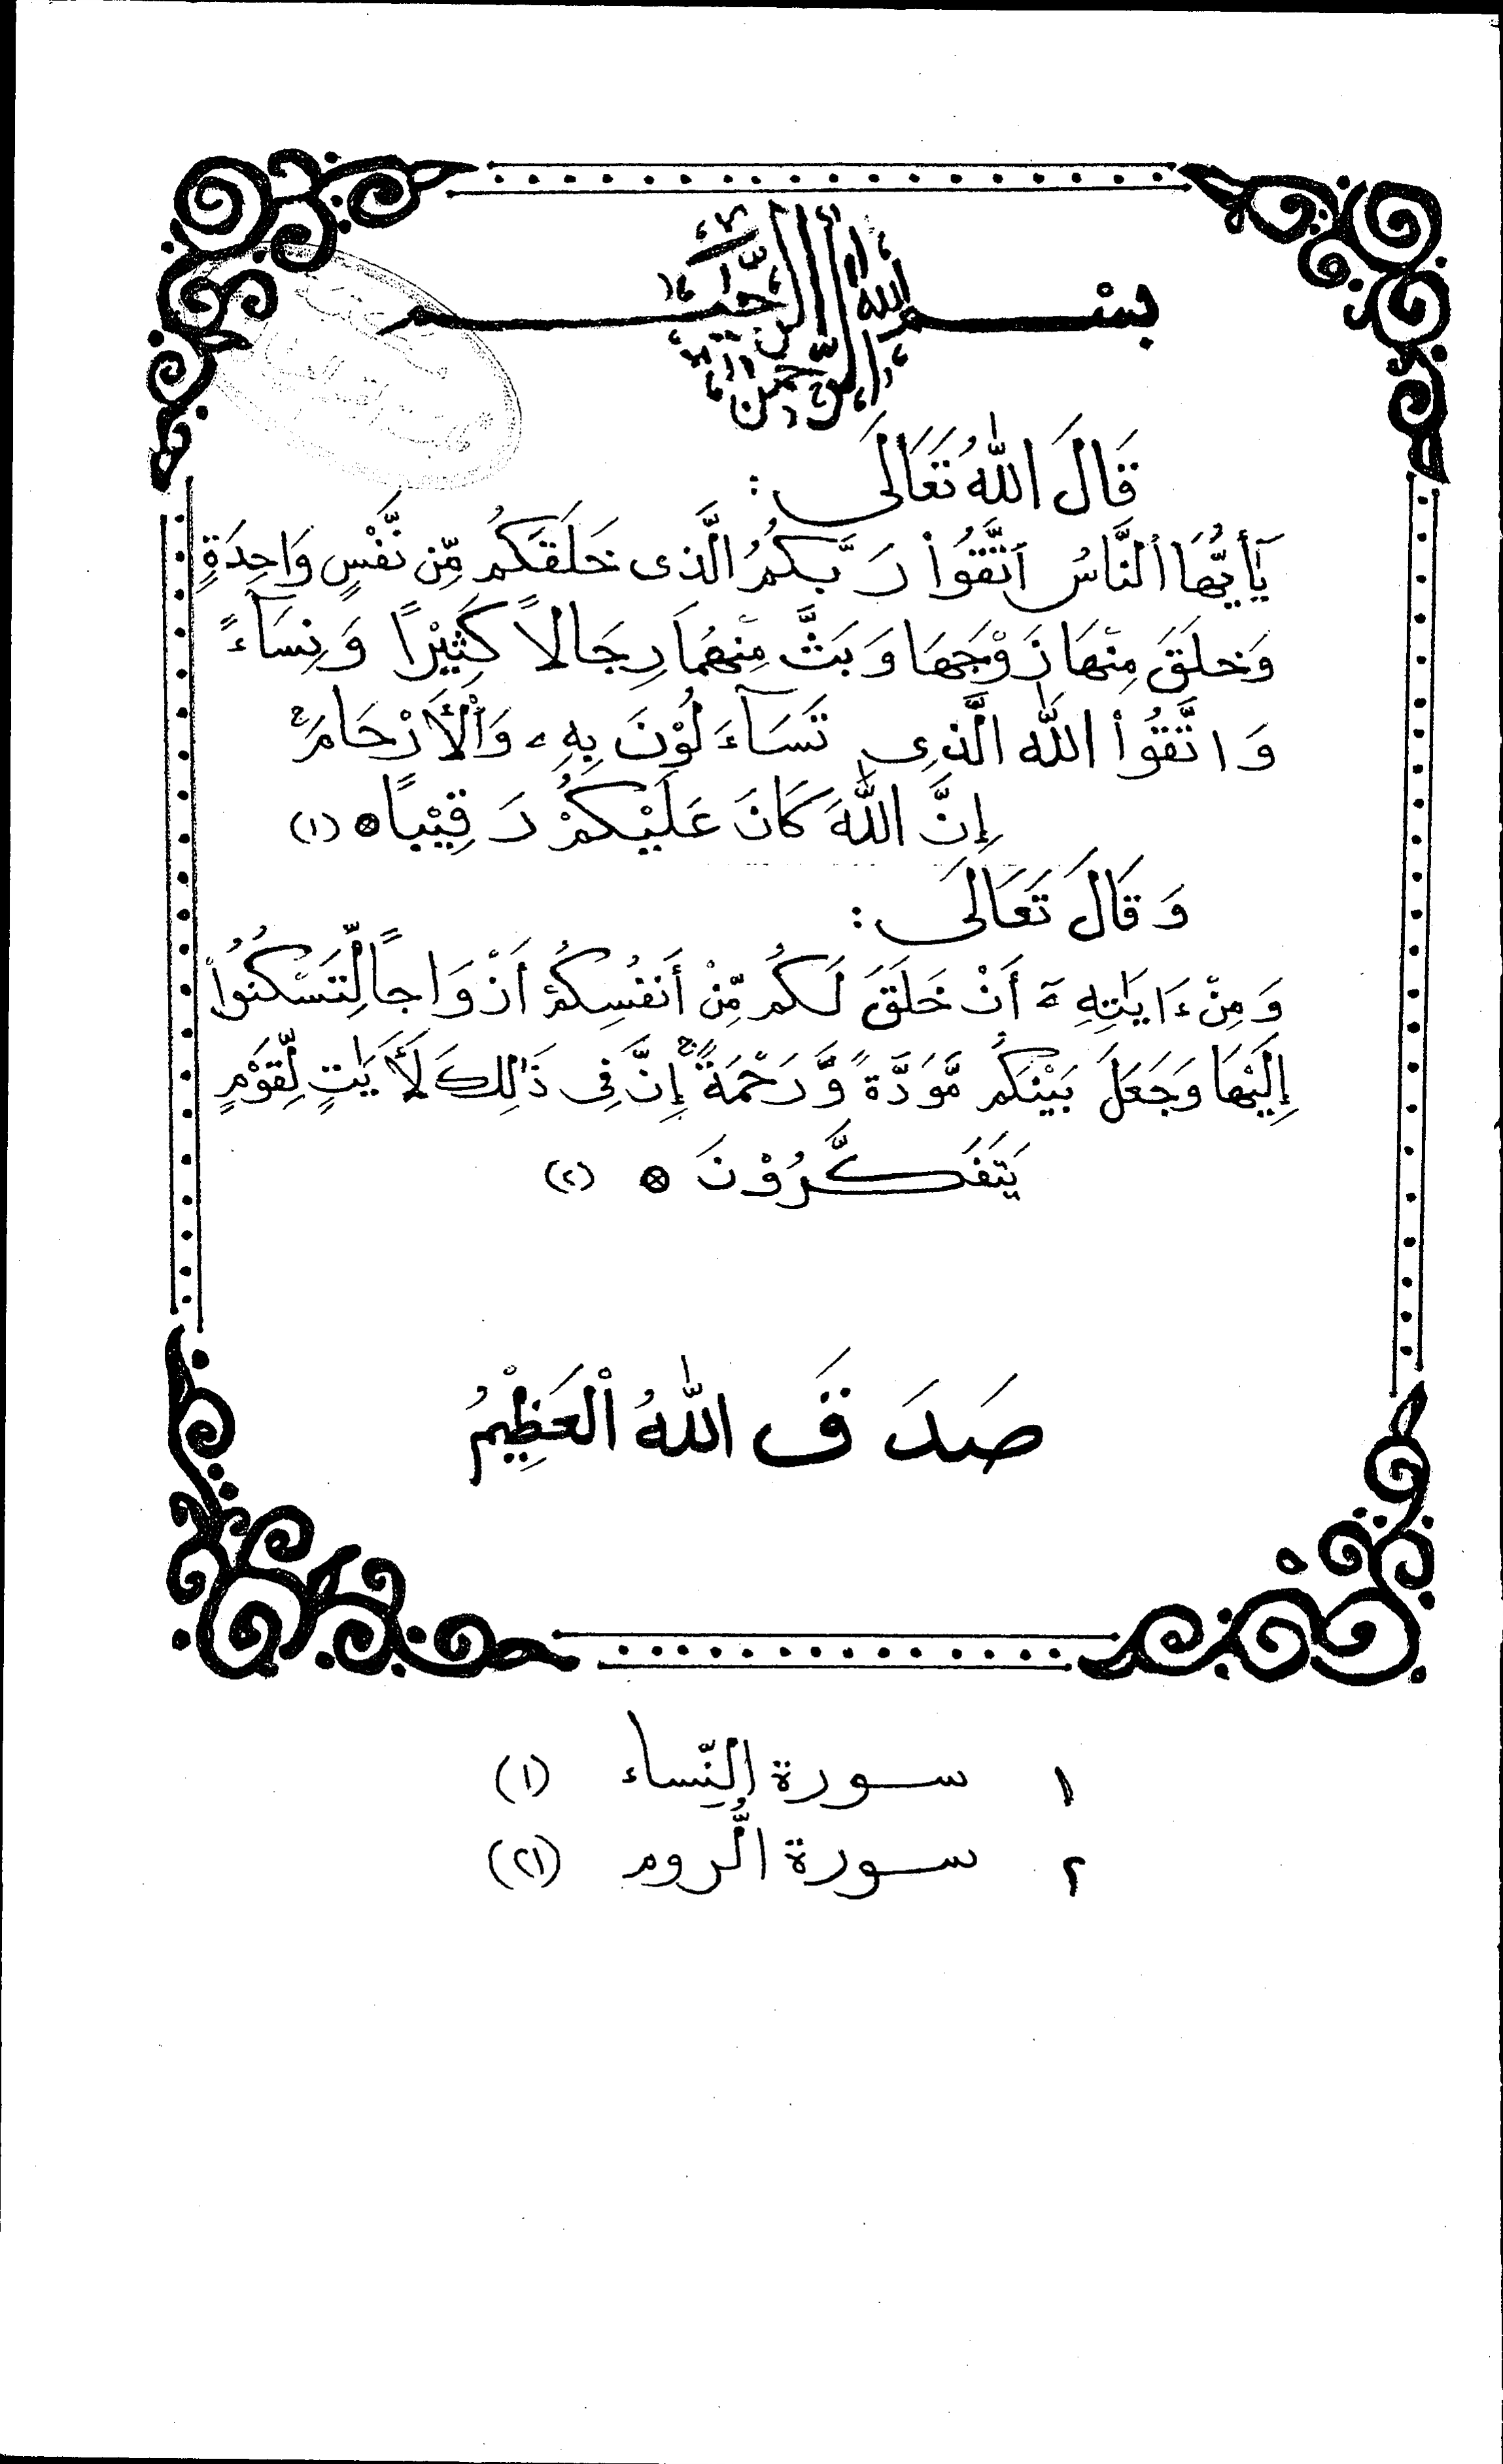 بِسْمِ اللهِ الرَّحْمٰنِ الرَّحِيمِ
قَالَ اللّٰهُ تَعَالَى :
يَٰٓأَيُّهَا ٱلنَّاسُ ٱتَّقُوا۟ رَبَّكُمُ الَّذِى خَلَقَكُم مِّن نَّفْسٍ وَاحِدَةٍ
وَخَلَقَ مِنْهَا زَوْجَهَا وَبَثَّ مِنْهُمَا رِجَالاً كَثِيْرًا وَنِسَآءً
وَاتَّقُوا۟ اللّٰهَ الَّذِى تَسَآءَلُوْنَ بِهِۦ وَٱلْأَرْحَامَ ۚ
إِنَّ اللّٰهَ كَانَ عَلَيْكُمْ رَقِيْبًا ⊗ (١)
وَقَالَ تَعَالَى :
وَمِنْ ءَايَٰتِهِۦٓ أَنْ خَلَقَ لَكُم مِّنْ أَنفُسِكُمْ أَزْوَاجًا لِّتَسْكُنُوا۟
إِلَيْهَا وَجَعَلَ بَيْنَكُم مَّوَدَّةً وَّرَحْمَةً ۚ إِنَّ فِى ذَٰلِكَ لَأَيَٰتٍ لِّقَوْمٍ
يَتَفَكَّرُوْنَ ⊗ (٢)
صَدَقَ اللّٰهُ ٱلْعَظِيْمُ
١ سورة النِّساء (١)
٢ سورة الرُّوم (٢١)